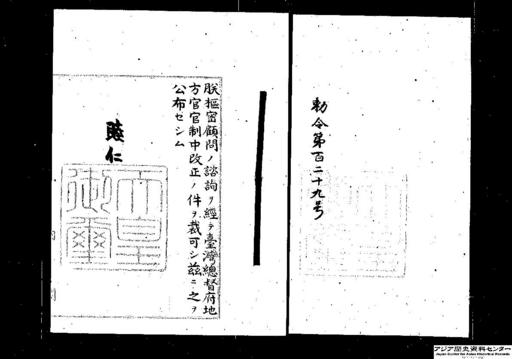 勅令第百二十九号
朕枢密顧問ノ諮詢ヲ經テ臺湾總督府地
方官官制中改正ノ件ヲ裁可シ茲ニ之ヲ
公布セシム
睦仁
天皇
御璽
アジア歴史資料センター
Japan Center for Asian Historical Records